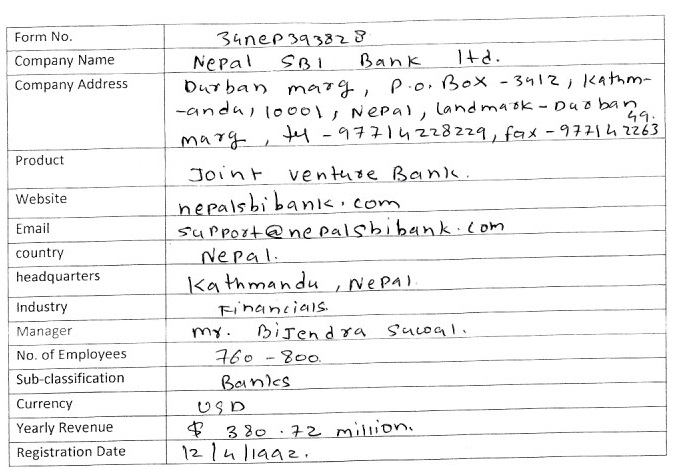 Form No. 34nep393828
Company Name Nepal SBI Bank ltd.
Company Address Durban marg, P.O. Box - 3412, Kathm-
-andu, 10001, Nepal, landmark - Durban
marg, tel - 97714228229, fax - 977142263
49.
Product Joint venture Bank.
Website nepalsbibank.com
Email support@nepalsbibank.com
country Nepal.
headquarters Kathmandu, Nepal
Industry Financials.
Manager mr. Bijendra Suwal.
No. of Employees 760 - 800.
Sub-classification Banks
Currency USD
Yearly Revenue $ 380.72 million.
Registration Date 12/4/1992.